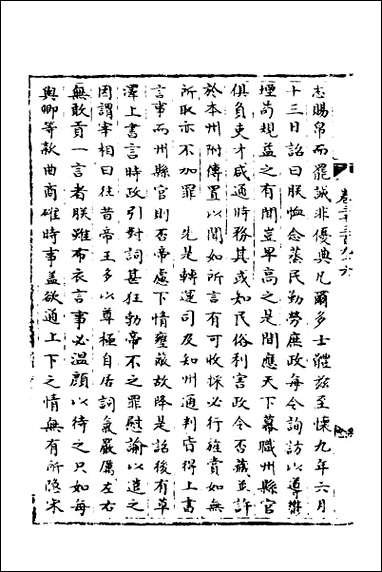 志賜帛而罷誠非優典凡爾多士體茲至懷九年六月
十三日詔曰朕恤念蒸民勤勞庶政每令詢訪以導鬱
堙苟規益之有聞豈卑高之是間應天下幕職州縣官
俱負吏才咸通時務其或如民俗利害政令否臧並許
於本州附傳置以聞如所言有可收採必行旌賞如無
所取亦不加罪　先是轉運司及知州通判皆得上書
言事而州縣官則否帝慮下情壅蔽故降是詔後有草
澤上書言時政引對詞甚狂勃帝不之罪慰諭以遣之
因謂宰相曰往昔帝王多以尊極自居詞氣嚴厲左右
無敢貢一言者朕雖布衣言事必溫顏以待之只如每
與卿等款曲商確時事蓋欲通上下之情無有所隱宋